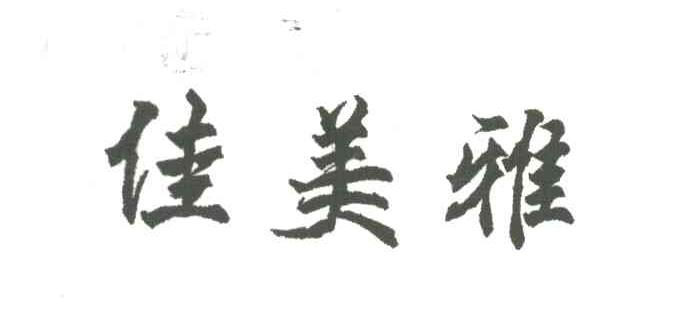 佳美雅